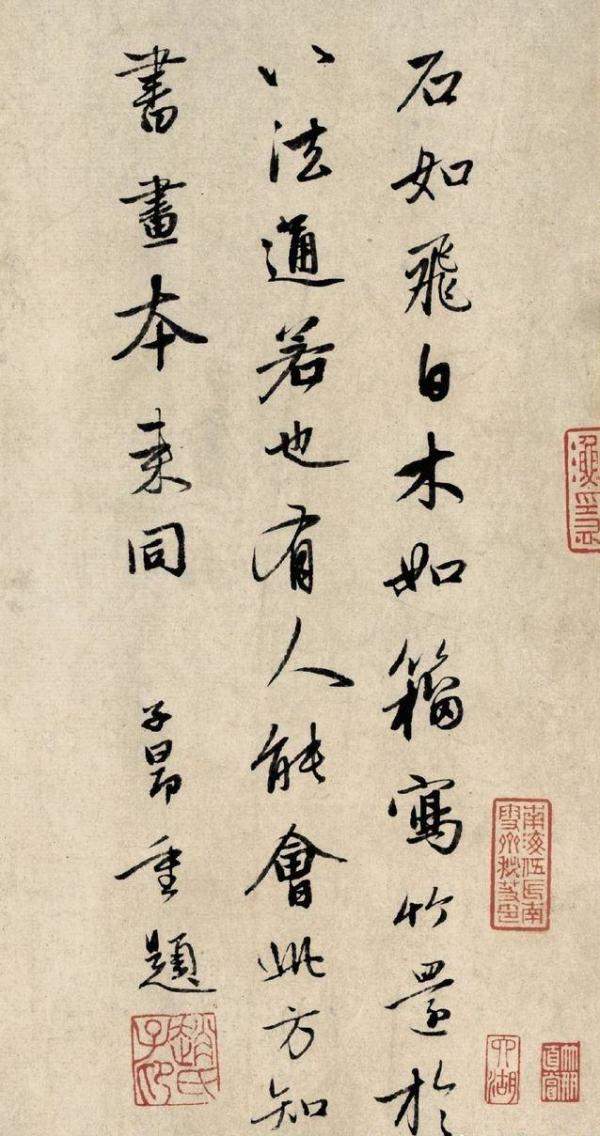 石如飛白木如籀寫竹還於
八法通若也有人能會此方知
書畫本来同
子昂重題
趙氏子昂